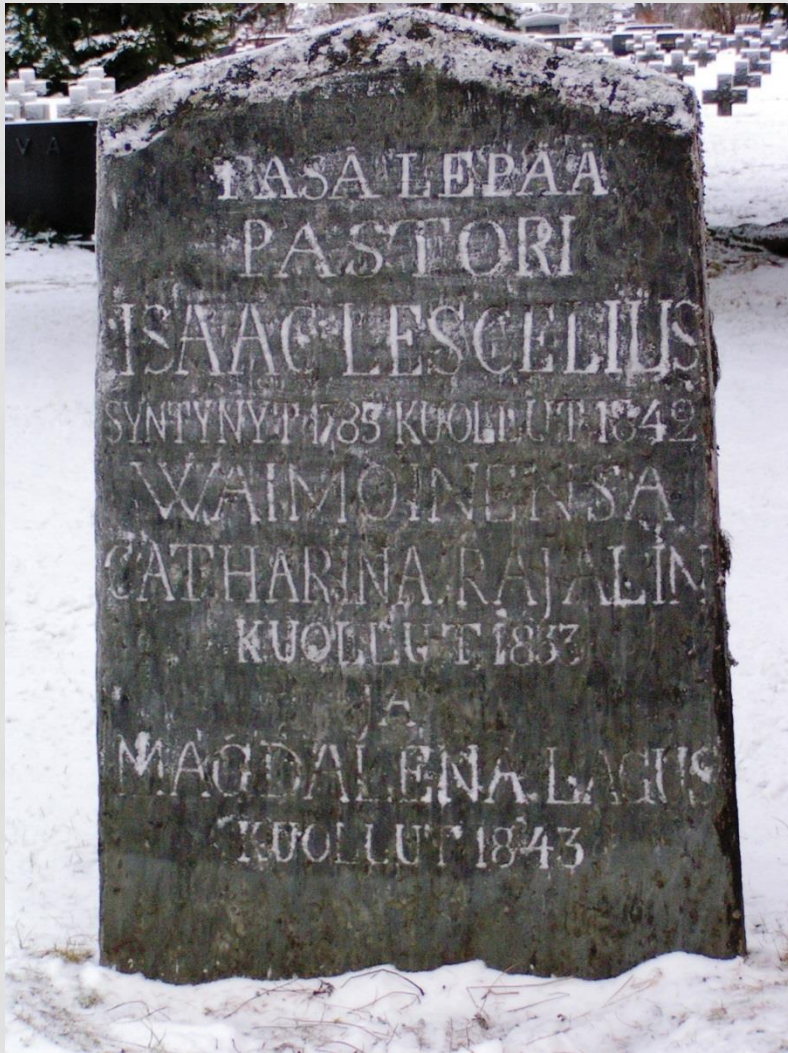 TASÄ LEPÄÄ
PASTORI
ISAAC LESCELIUS
SYNTYNYT 1785 KUOLLUT 1842
WAIMOINENSA
CATHARINA RAJALIN
KUOLLUT 1833
JA
MAGDALENA LAGUS
KUOLLUT 1843